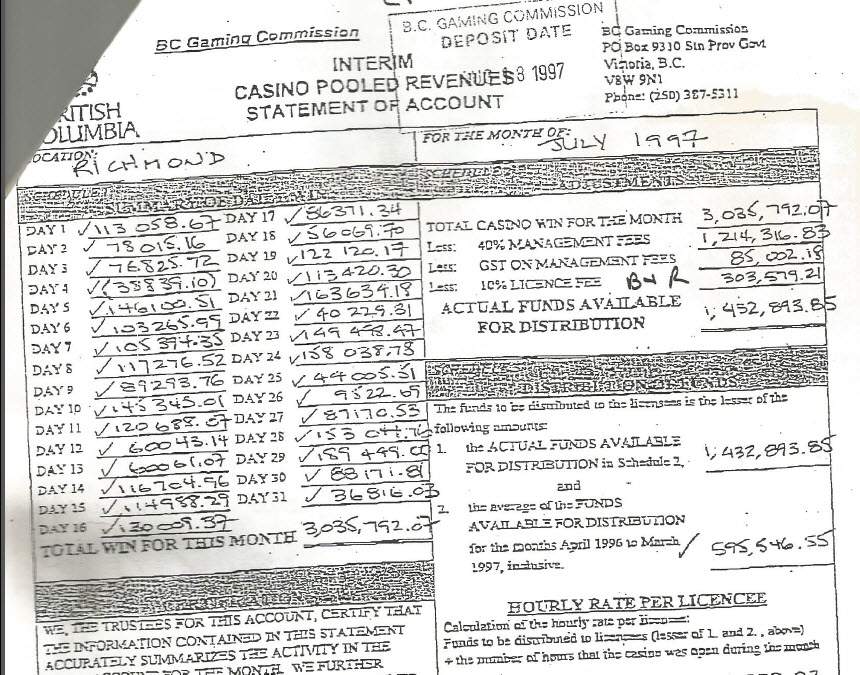 BC Gaming Commission
B.C. GAMING COMMISSION
DEPOSIT DATE
8 1997
BC Gaming Commission
PO Box 9310 Stn Prov Govt
Victoria, B.C.
V8W 9N1
Phone: (250) 387-5311
INTERIM
CASINO POOLED REVENUES
STATEMENT OF ACCOUNT
RITISH
OLUMBIA
OCATION: RICHMOND
FOR THE MONTH OF: JULY 1997
DAY 1 ✓113 058.67 DAY 17 ✓86371.34
DAY 2 ✓78015.16 DAY 18 ✓56069.70
DAY 3 ✓76825.72 DAY 19 ✓122 120.17
DAY 4 ✓(38839.10) DAY 20 ✓113420.30
DAY 5 ✓146100.51 DAY 21 ✓163634.18
DAY 6 ✓103265.99 DAY 22 ✓40229.31
DAY 7 ✓105894.35 DAY 23 ✓149498.47
DAY 8 ✓117276.52 DAY 24 ✓158 038.78
DAY 9 ✓89293.76 DAY 25 ✓44005.51
DAY 10 ✓145345.01 DAY 26 ✓9522.69
DAY 11 ✓120688.07 DAY 27 ✓87170.53
DAY 12 ✓60043.14 DAY 28 ✓153 044.76
DAY 13 ✓60061.07 DAY 29 ✓189 499.00
DAY 14 ✓116704.96 DAY 30 ✓88171.81
DAY 15 ✓114988.29 DAY 31 ✓36816.03
DAY 16 ✓130009.37
TOTAL WIN FOR THIS MONTH 3,035,792.07
SCHEDULE
ADJUSTMENTS
TOTAL CASINO WIN FOR THE MONTH 3,035,792.07
Less: 40% MANAGEMENT FEES 1,214,316.83
Less: GST ON MANAGEMENT FEES 85,002.18
Less: 10% LICENCE FEE B+R 303,579.21
ACTUAL FUNDS AVAILABLE
FOR DISTRIBUTION 1,432,893.85
SCHEDULE
DISTRIBUTION OF FUNDS
The funds to be distributed to the licensees is the lesser of the
following amounts:
1. the ACTUAL FUNDS AVAILABLE
FOR DISTRIBUTION in Schedule 2, 1,432,893.85
and
2. the average of the FUNDS
AVAILABLE FOR DISTRIBUTION
for the months April 1996 to March ✓ 595,546.55
1997, inclusive.
HOURLY RATE PER LICENCEE
Calculation of the hourly rate per licensee:
Funds to be distributed to licensees (lesser of 1. and 2., above)
÷ the number of hours that the casino was open during the month
WE, THE TRUSTEES FOR THIS ACCOUNT, CERTIFY THAT
THE INFORMATION CONTAINED IN THIS STATEMENT
ACCURATELY SUMMARIZES THE ACTIVITY IN THE
FOR THE MONTH. WE FURTHER